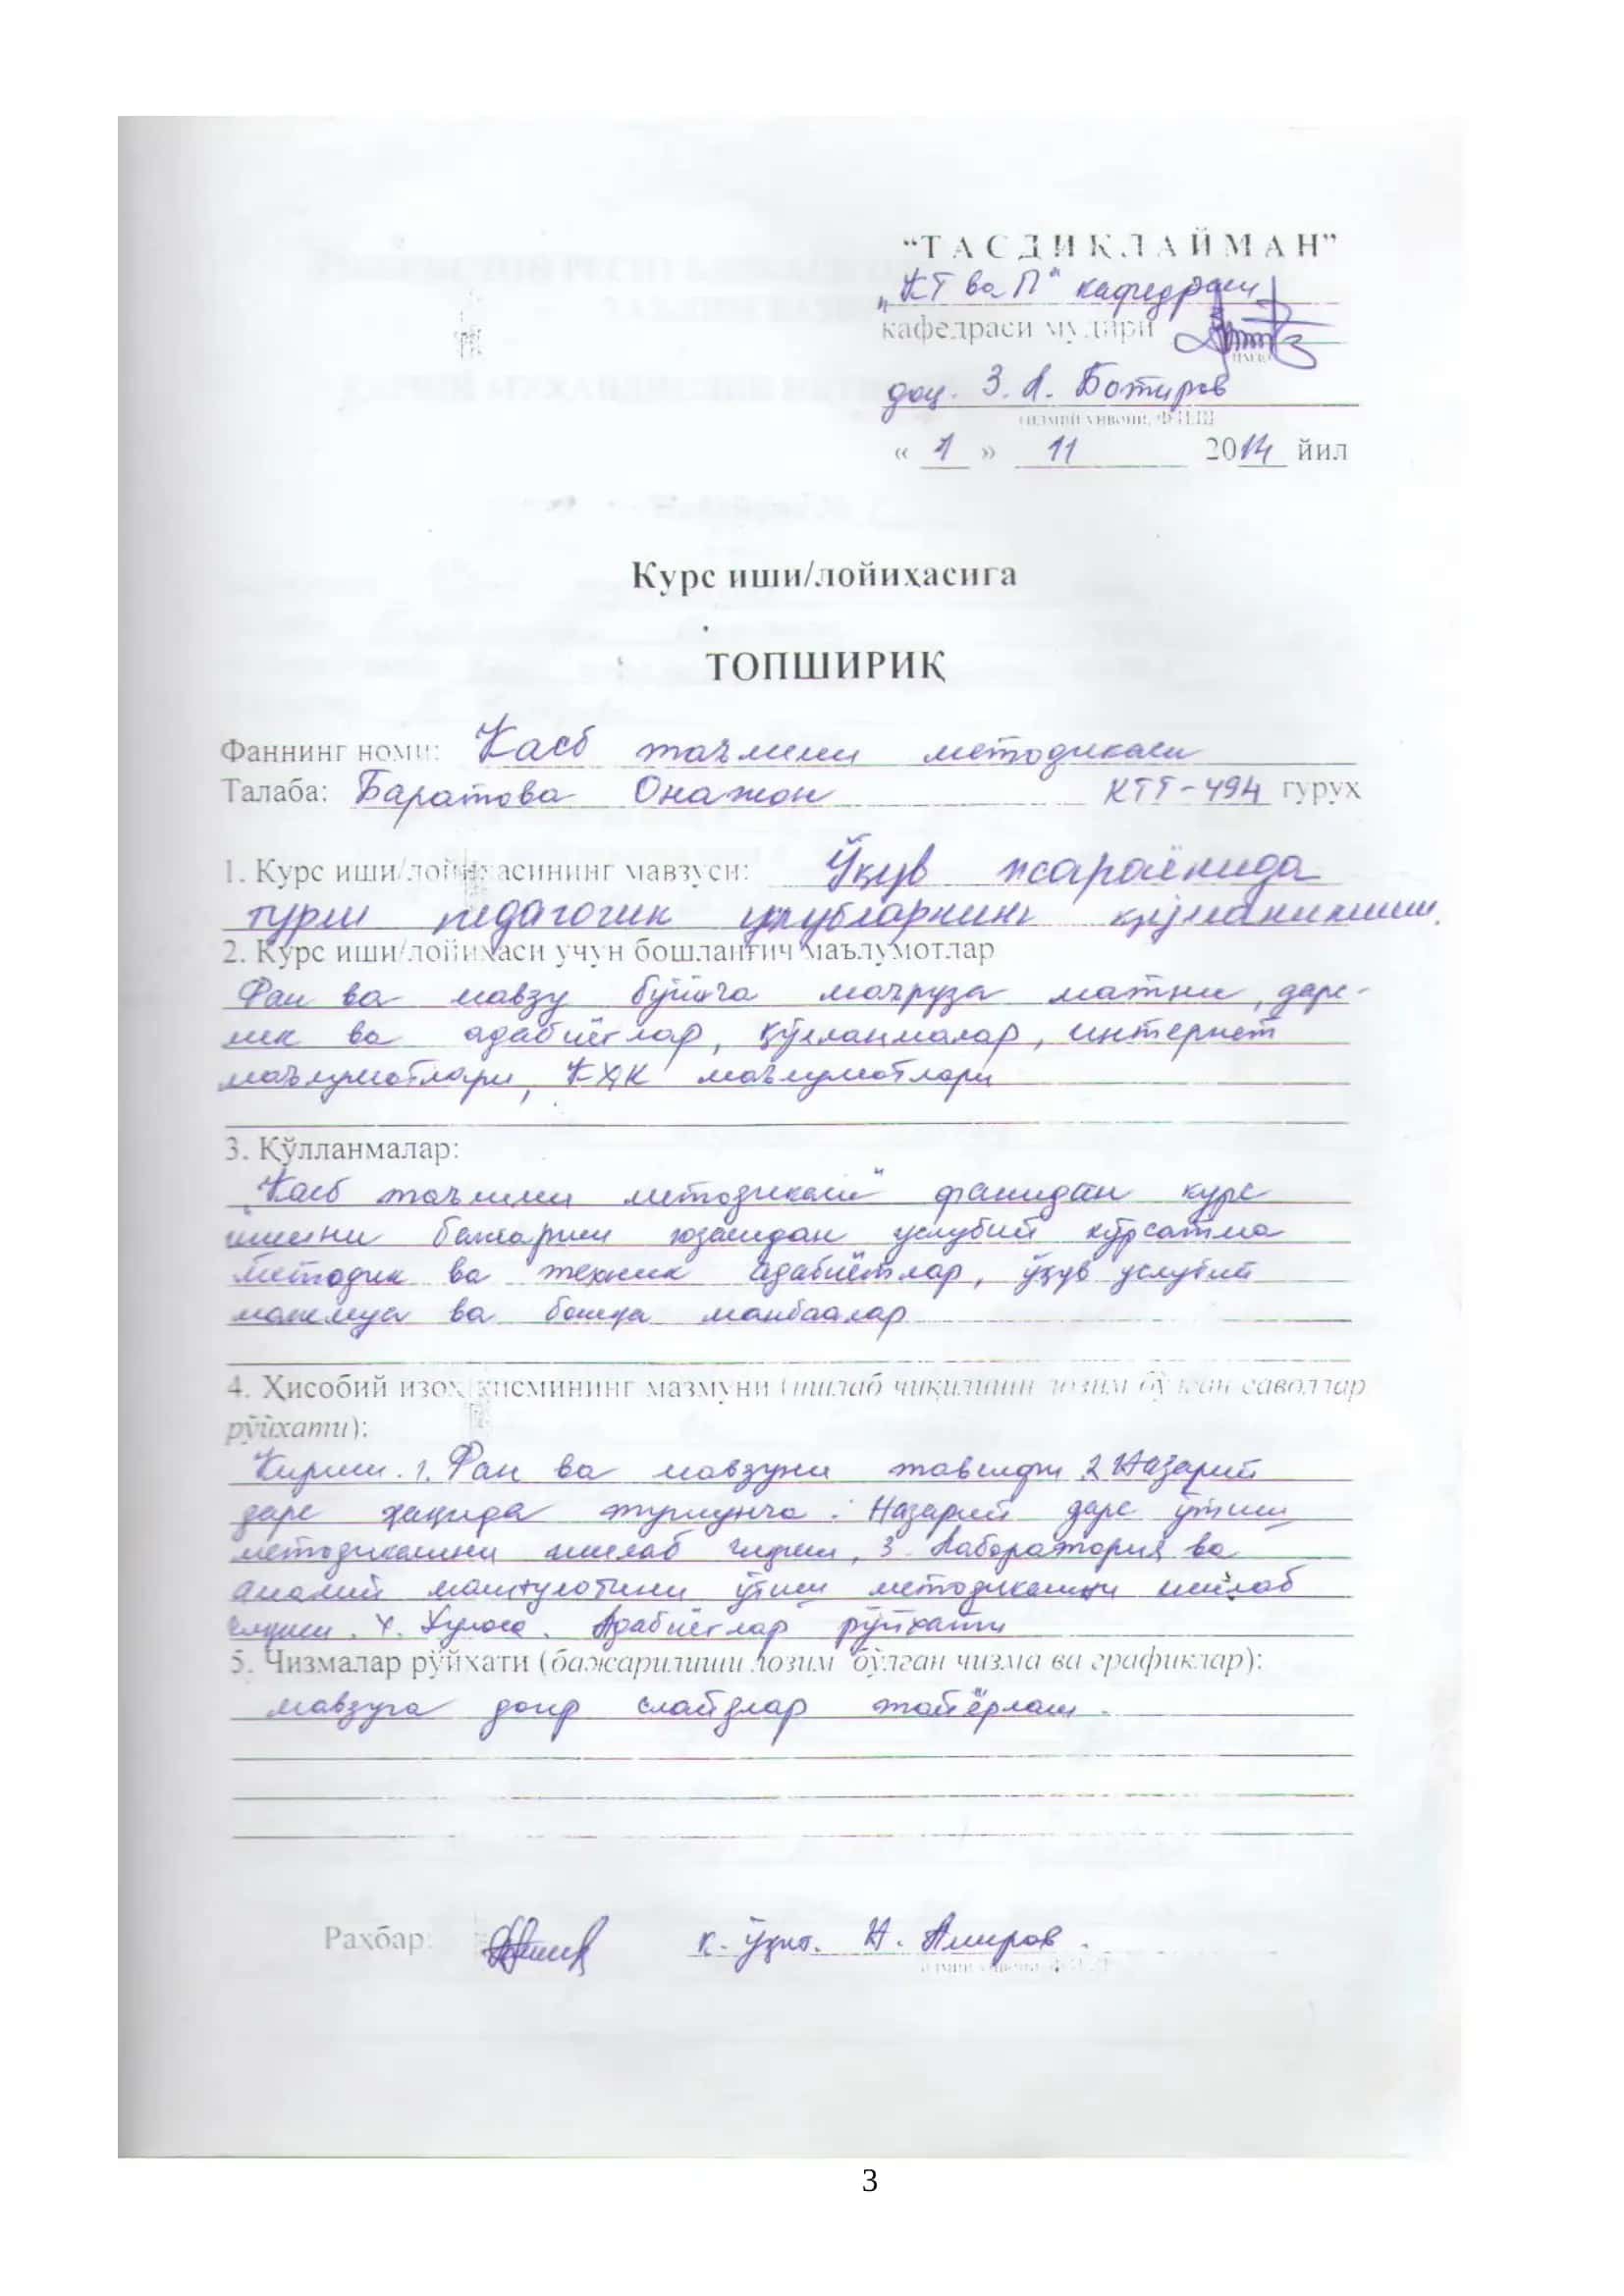 “Т А С Д И Қ Л А Й М А Н”
„КТ ва П“ кафедраси
кафедраси мудири
имзо
доц. З. А. Ботиров
илмий унвони, Ф.И.Ш
« 1 » 11 2014 йил
Курс иши/лойиҳасига
ТОПШИРИҚ
Фаннинг номи: Касб таълими методикаси
Талаба: Баратова Онажон КТТ-494 гурух
1. Курс иши/лойиҳасининг мавзуси: Ўқув жараёнида
турли педагогик услубларнинг қўлланилиши.
2. Курс иши/лойиҳаси учун бошланғич маълумотлар
Фан ва мавзу бўйича маъруза матни, дарс-
лик ва адабиётлар, қўлланмалар, интернет
маълумотлари, КҲК маълумотлари
3. Қўлланмалар:
„Касб таълими методикаси“ фанидан курс
ишини бажариш юзасидан услубий кўрсатма
методик ва техник адабиётлар, ўқув услубий
мажмуа ва бошқа манбаалар
4. Ҳисобий изоҳ қисмининг мазмуни (ишлаб чиқилиши лозим бўлган саволлар
рўйхати):
Кириш. 1. Фан ва мавзуни тавсифи 2 Назарий
дарс ҳақида тушунча. Назарий дарс ўтиш
методикасини ишлаб чиқиш, 3. Лаборатория ва
амалий машғулотини ўтиш методикасини ишлаб
чиқиш. 4. Хулоса. Адабиётлар рўйхати
5. Чизмалар рўйхати (бажарилиши лозим бўлган чизма ва графиклар):
мавзуга доир слайдлар тайёрлаш.
Раҳбар: к. ўқит. Н. Амиров.
илмий унвони, Ф.И.Ш
3